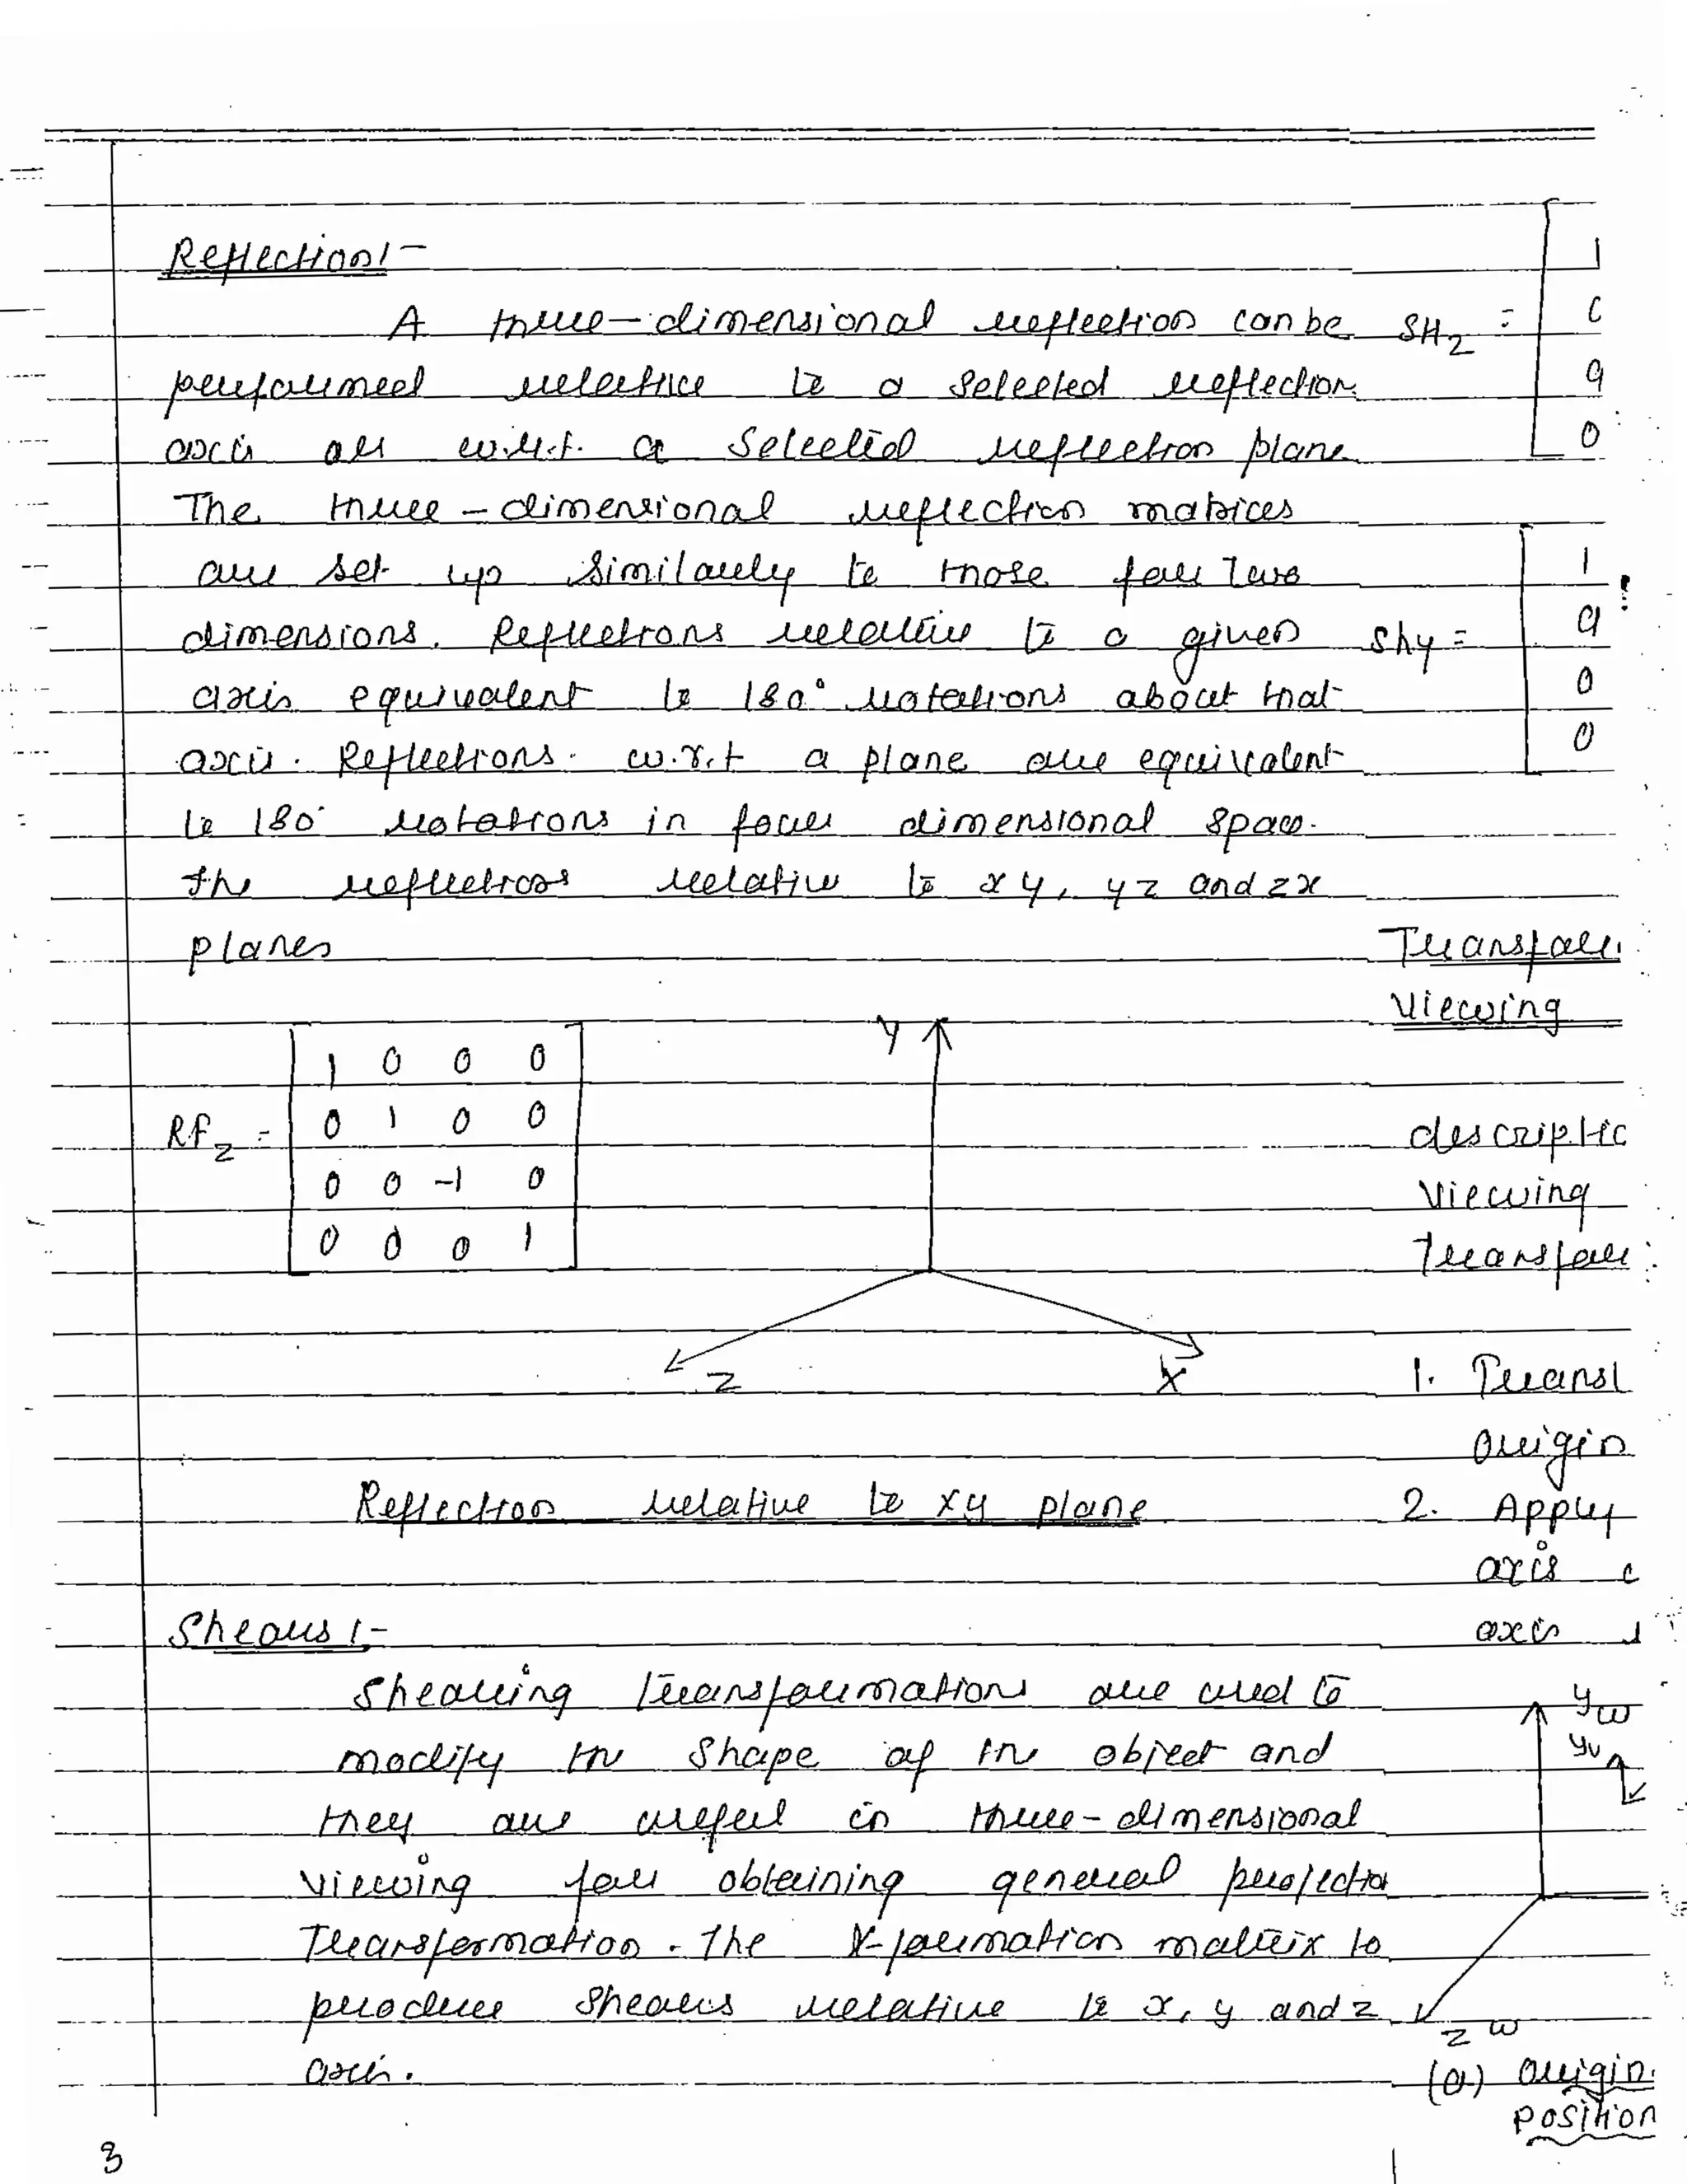 Reflection :-
A three-dimensional reflection can be
performed relative to a selected reflection
axis or w.r.t. a selected reflection plane
The three-dimensional reflection matrices
are set up similarly to those for two
dimensions. Reflections relative to a given
axis equivalent to 180° rotations about that
axis. Reflections w.r.t a plane are equivalent
to 180° rotations in four dimensional space.
The reflections relative to xy, yz and zx
planes
RFz =
1 0 0 0
0 1 0 0
0 0 -1 0
0 0 0 1
Y
Z
X
Reflection relative to xy plane
Shears :-
Shearing transformations are used to
modify the shape of the object and
they are useful in three-dimensional
viewing for obtaining general projectio
Transformation. The X-formation matrix to
produce shears relative to x, y and z
axis.
3
SHz =
1
0
a
0
Shy =
1
a
0
0
Transfor
Viewing
descriptio
Viewing
Transfor
1. Transl
Origin
2. Apply
axis
axis
yw
yv
zw
(a) Origin
position